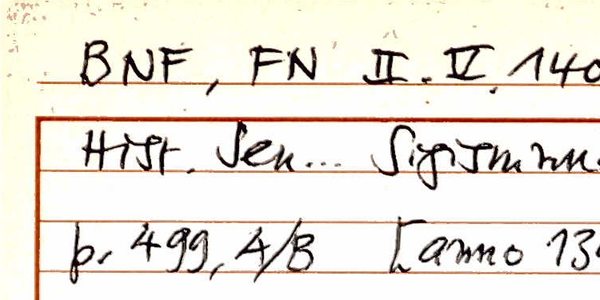 BNF, FN II. V. 140
Hist. Sen... Sigismun
p. 499, A/B [anno 13